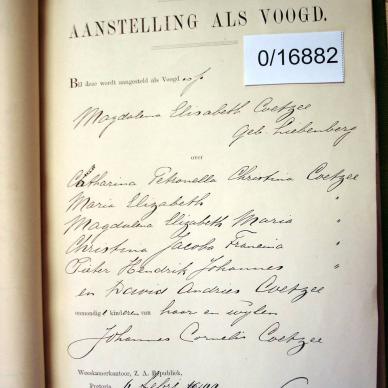 AANSTELLING ALS VOOGD.
0/16882
Bij deze wordt aangesteld als Voogd esse
Magdalena Elisabeth Coetzee
Geb. Liebenberg
over
Catharina Petronella Christina Coetzee
Maria Elizabeth "
Magdalena Elizabeth Maria "
Christina Jacoba Francina "
Pieter Hendrik Johannes "
en David Andries Coetzee
onmondige kinderen van haar en wylen
Johannes Cornelis Coetzee
Weeskamerkantoor, Z. A. Republiek,
Pretoria